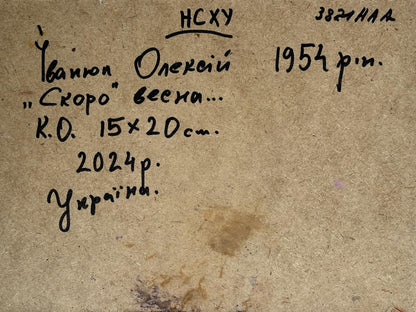 НСХУ
Іванюк Олексій 1954 р.н.
„Скоро" весна...
К.О. 15×20 см.
2024р.
Україна.